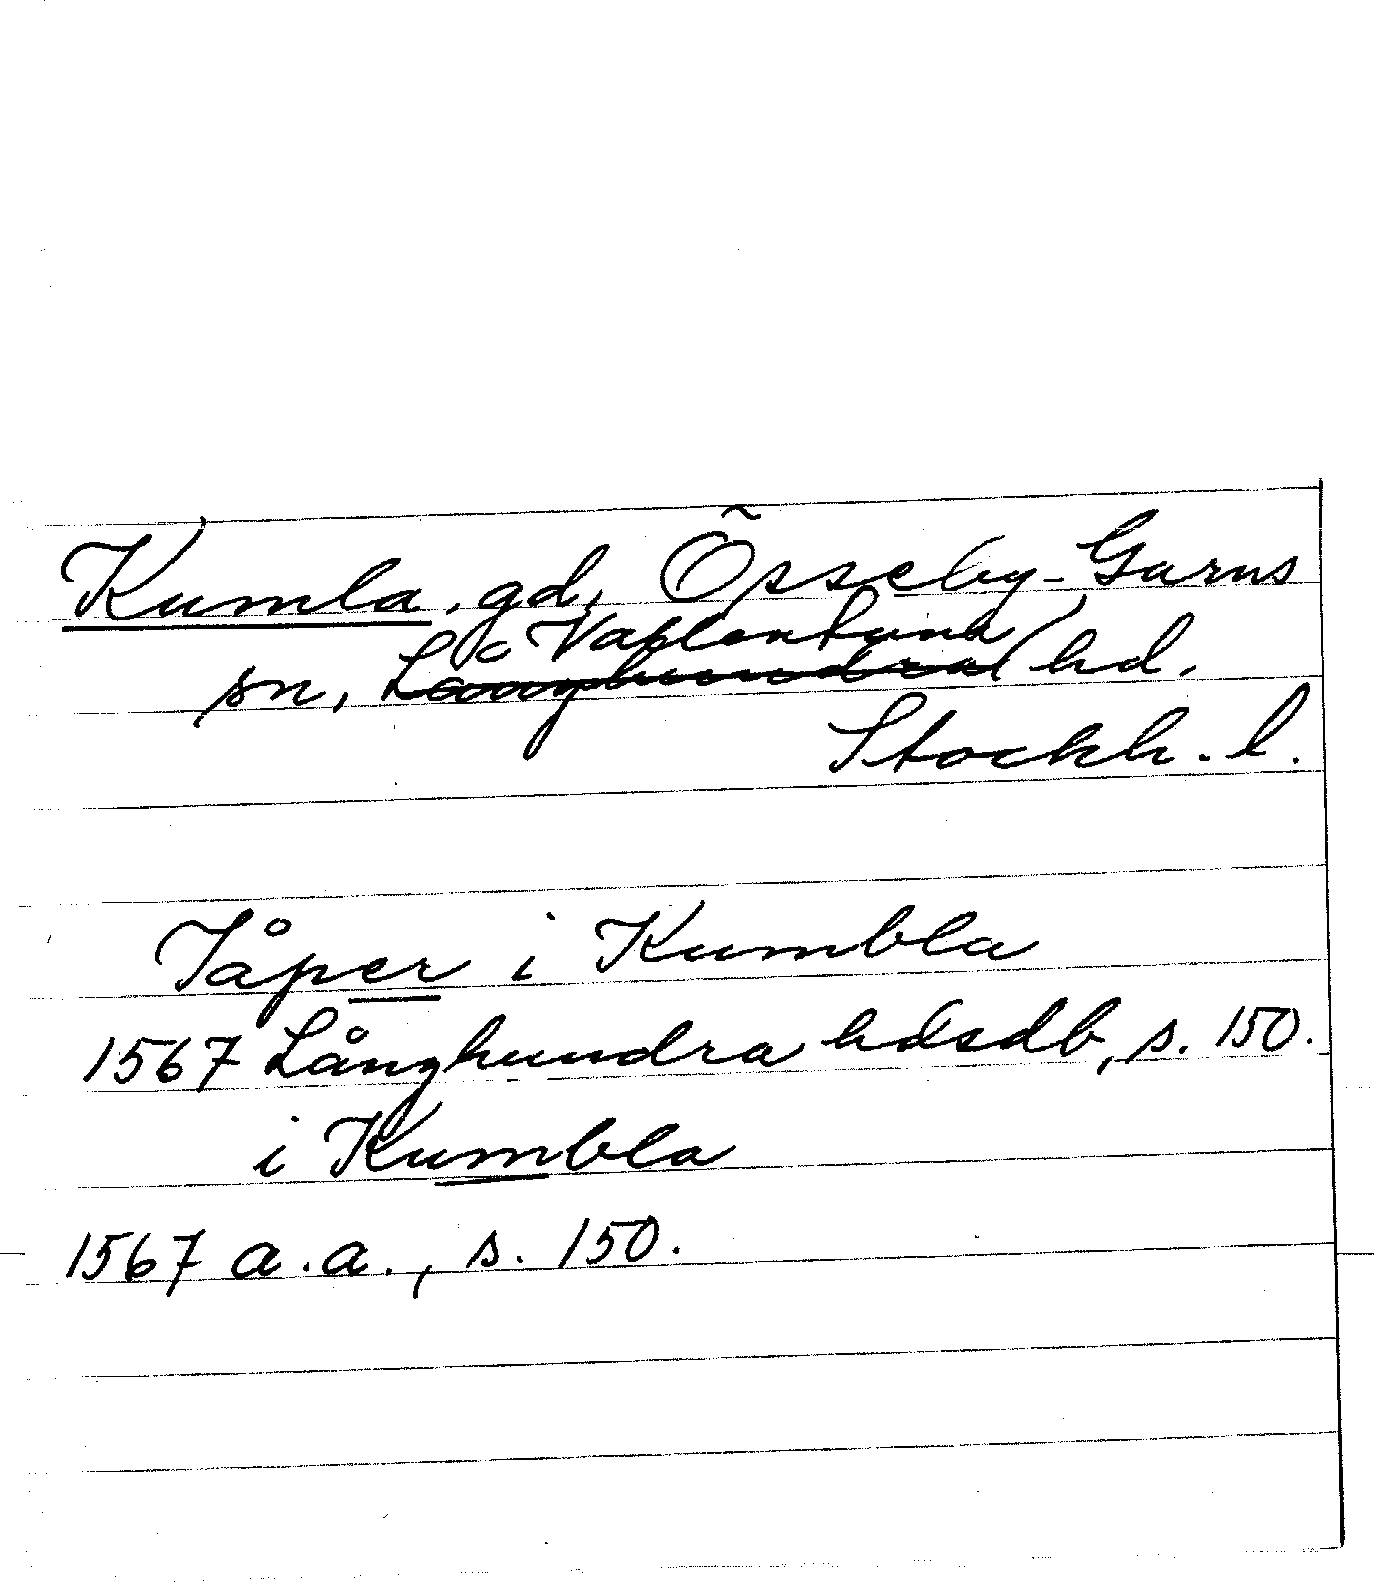 Kumla, gd, Össeby-Garns
Vallentuna
sn, Långhundra hd.
Stockh. l.
Jåper i Kumbla
1567 Långhundra hdsdb, s. 150.
i Kumbla
1567 a.a., s. 150.